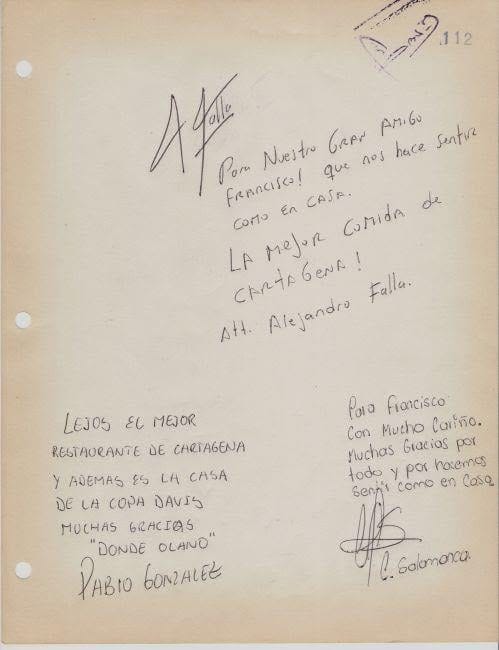 112
A Falla
Para Nuestro GRAN AMIGO
FRANCISCO! que nos hace sentir
como en CASA.
LA MEJOR COMIDA de
CARTAGENA!
Att. Alejandro Falla.
LEJOS EL MEJOR
RESTAURANTE DE CARTAGENA
Y ADEMAS ES LA CASA
DE LA COPA DAVIS
MUCHAS GRACIAS
"DONDE OLANO"
PABLO GONZALEZ
Para Francisco
Con Mucho Cariño.
Muchas Gracias por
todo y por hacernos
Sentir como en Casa
C. Salamanca.